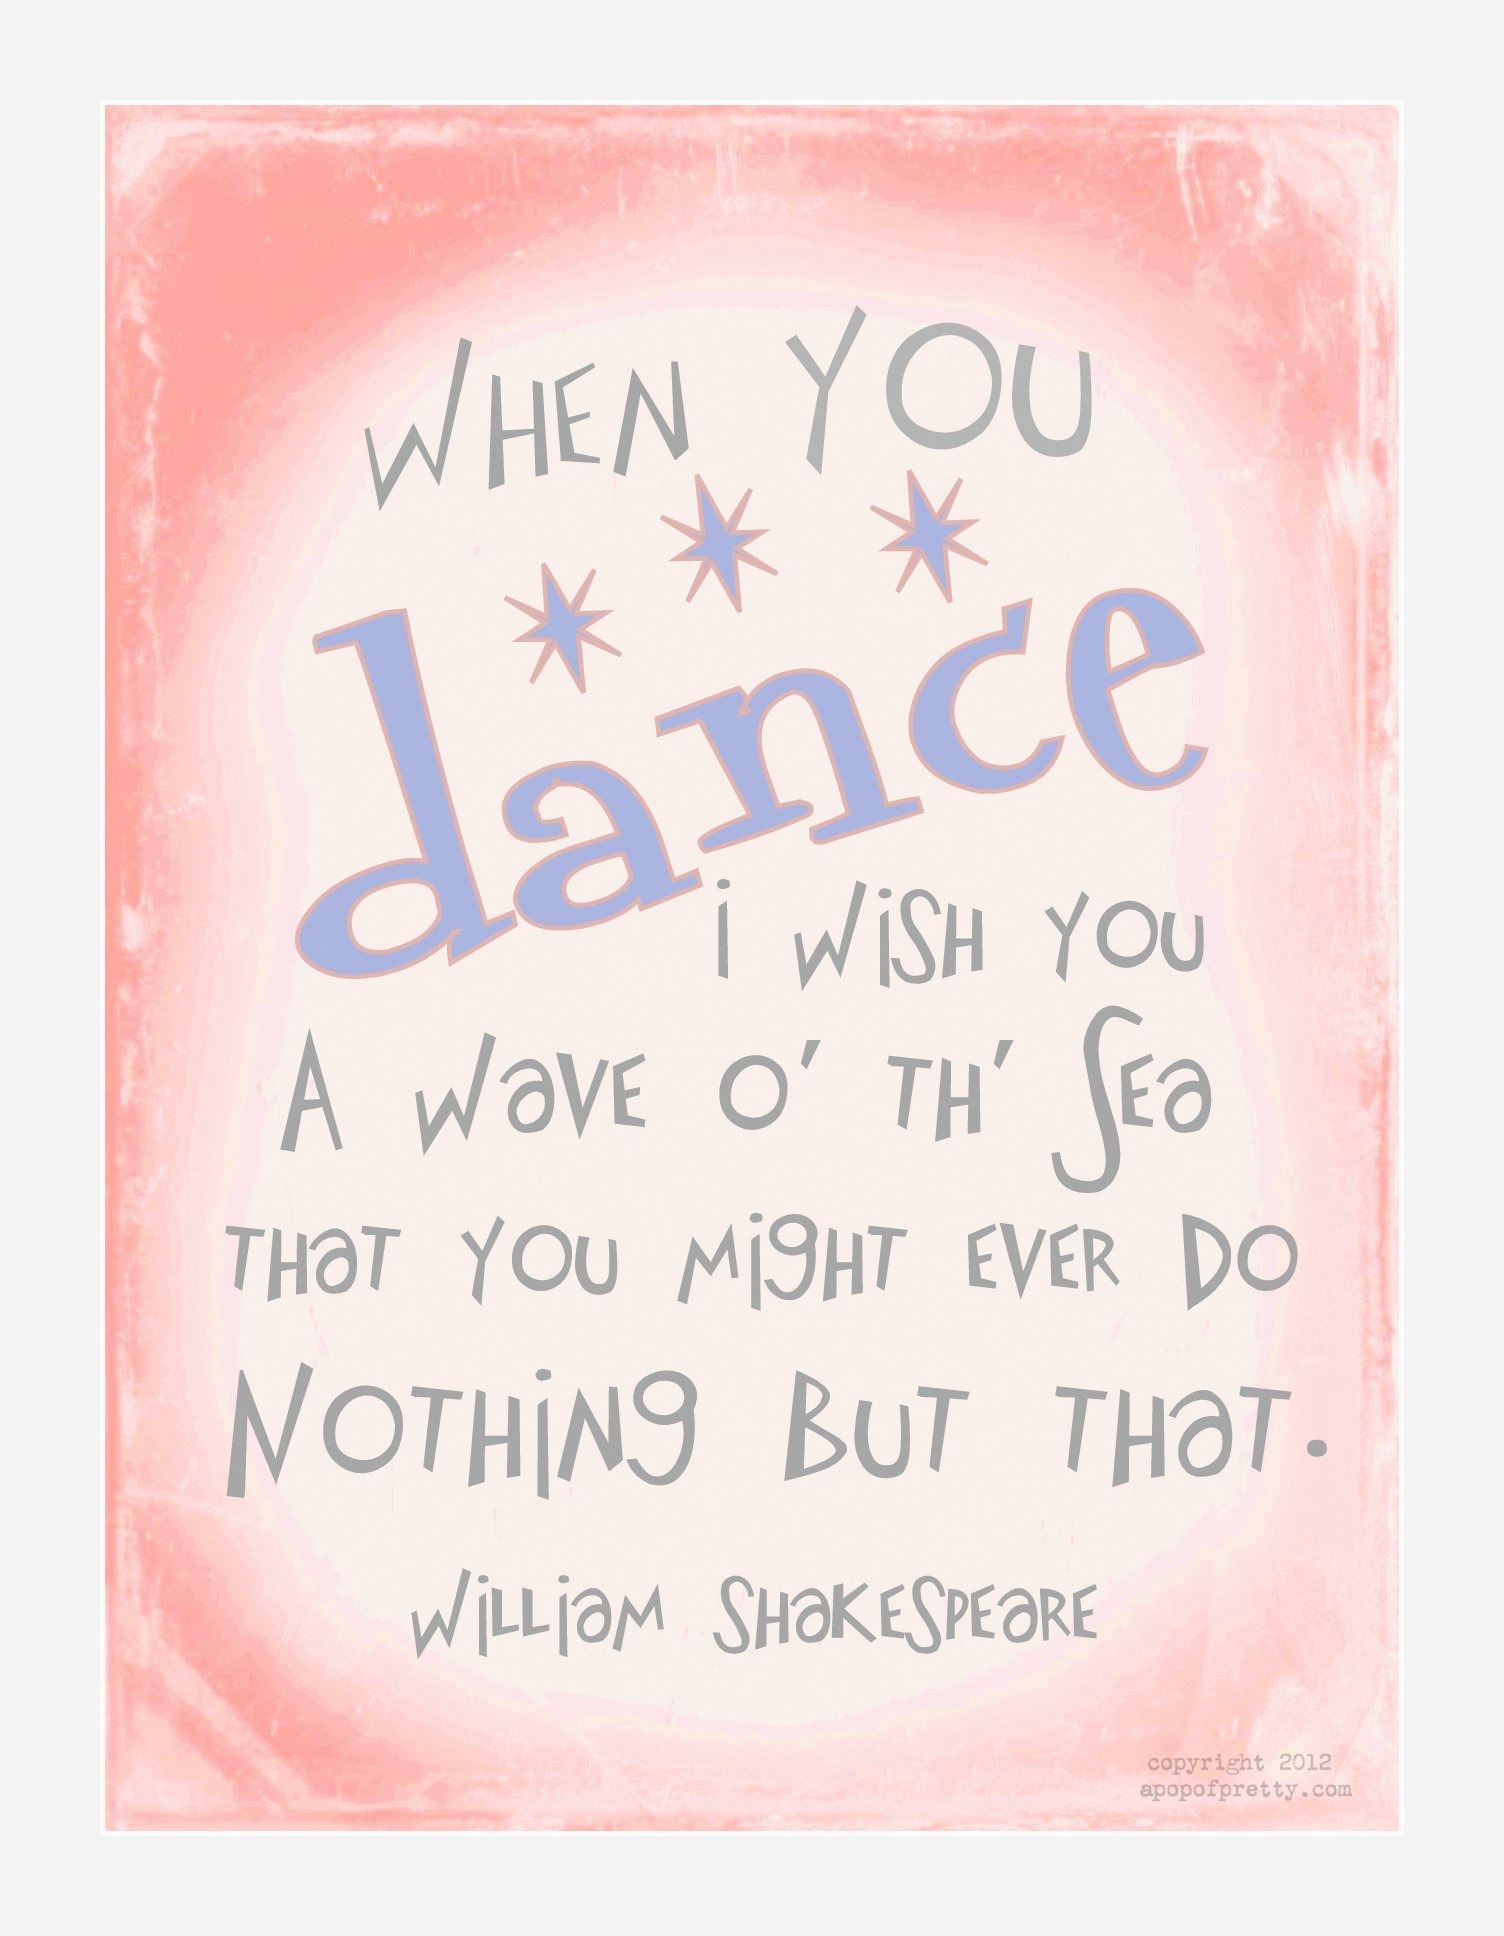 WHEN YOU
dance
i WiSH YOU
A WaVE O' TH' SEa
THaT YOU MigHT EVER DO
NOTHiNg BUT THaT.
WiLLiaM SHaKESPEaRE
copyright 2012
apopofpretty.com